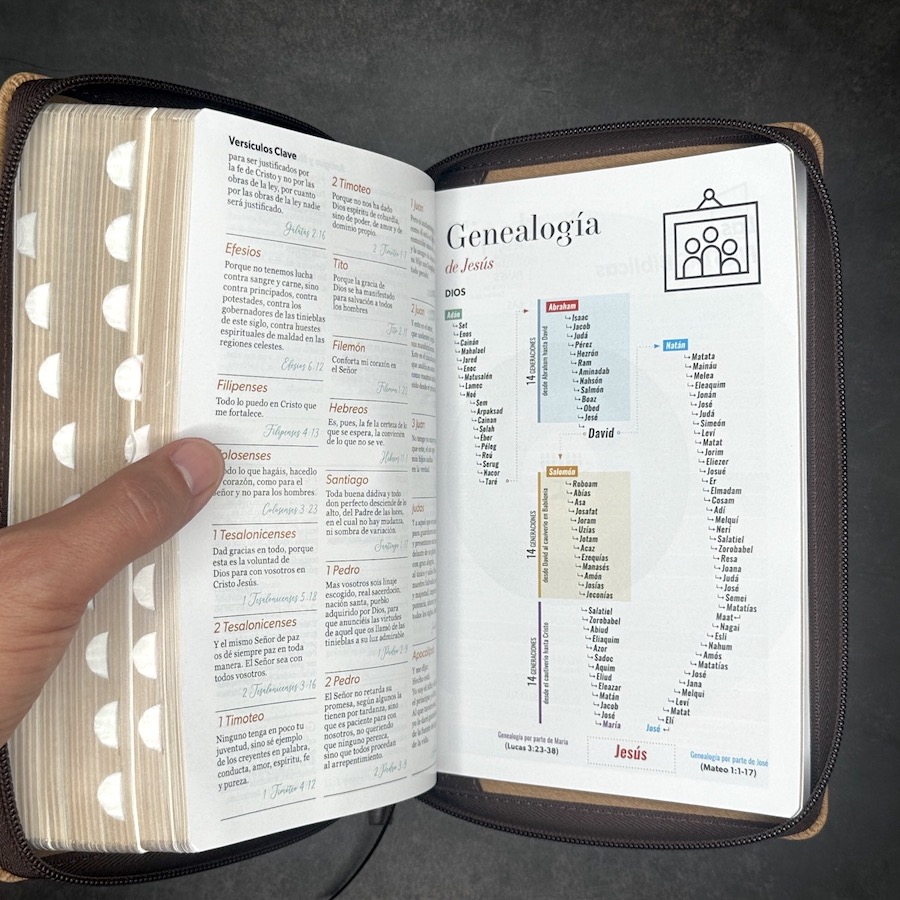 Versículos Clave
para ser justificados por
la fe de Cristo y no por las
obras de la ley, por cuanto
por las obras de la ley nadie
será justificado.
Gálatas 2:16
Efesios
Porque no tenemos lucha
contra sangre y carne, sino
contra principados, contra
potestades, contra los
gobernadores de las tinieblas
de este siglo, contra huestes
espirituales de maldad en las
regiones celestes.
Efesios 6:12
Filipenses
Todo lo puedo en Cristo que
me fortalece.
Filipenses 4:13
olosenses
do lo que hagáis, hacedlo
corazón, como para el
eñor y no para los hombres.
Colosenses 3:23
1 Tesalonicenses
Dad gracias en todo, porque
esta es la voluntad de
Dios para con vosotros en
Cristo Jesús.
1 Tesalonicenses 5:18
2 Tesalonicenses
Y el mismo Señor de paz
os dé siempre paz en toda
manera. El Señor sea con
todos vosotros.
2 Tesalonicenses 3:16
1 Timoteo
Ninguno tenga en poco tu
juventud, sino sé ejemplo
de los creyentes en palabra,
conducta, amor, espíritu, fe
y pureza.
1 Timoteo 4:12
2 Timoteo
Porque no nos ha dado
Dios espíritu de cobardía,
sino de poder, de amor y de
dominio propio.
2 Timoteo
Tito
Porque la gracia de
Dios se ha manifestado
para salvación a todos
los hombres
Tito 2:11
Filemón
Conforta mi corazón en
el Señor
Filemón 1:2
Hebreos
Es, pues, la fe la certeza de lo
que se espera, la convicción
de lo que no se ve.
Hebreos 11:1
Santiago
Toda buena dádiva y todo
don perfecto desciende de lo
alto, del Padre de las luces,
en el cual no hay mudanza,
ni sombra de variación.
Santiago 1:17
1 Pedro
Mas vosotros sois linaje
escogido, real sacerdocio,
nación santa, pueblo
adquirido por Dios, para
que anunciéis las virtudes
de aquel que os llamó de las
tinieblas a su luz admirable
1 Pedro 2:9
2 Pedro
El Señor no retarda su
promesa, según algunos la
tienen por tardanza, sino
que es paciente para con
nosotros, no queriendo
que ninguno perezca,
sino que todos procedan
al arrepentimiento.
2 Pedro 3:9
1 Juan
2 Juan
3 Juan
Judas
Apocalips
Genealogía
de Jesús
DIOS
Adán
Set
Enos
Cainán
Mahalael
Jared
Enoc
Matusalén
Lamec
Noé
Sem
Arpaksad
Cainan
Salah
Eber
Péleg
Reú
Serug
Nacor
Taré
14 GENERACIONES
desde Abraham hasta David
Abraham
Isaac
Jacob
Judá
Pérez
Hezrón
Ram
Aminadab
Nahsón
Salmón
Boaz
Obed
Jesé
David
14 GENERACIONES
desde David al cautiverio en Babilonia
Salomón
Roboam
Abías
Asa
Josafat
Joram
Uzías
Jotam
Acaz
Ezequías
Manasés
Amón
Josías
Jeconías
14 GENERACIONES
desde el cautiverio hasta Cristo
Salatiel
Zorobabel
Abiud
Eliaquim
Azor
Sadoc
Aquim
Eliud
Eleazar
Matán
Jacob
José
María
Natán
Matata
Mainán
Melea
Eleaquim
Jonán
José
Judá
Simeón
Leví
Matat
Jorim
Eliezer
Josué
Er
Elmadam
Cosam
Adí
Melquí
Neri
Salatiel
Zorobabel
Resa
Joana
Judá
José
Semei
Matatías
Maat
Nagai
Esli
Nahum
Amós
Matatías
José
Jana
Melqui
Leví
Matat
Elí
José
Genealogía por parte de María
(Lucas 3:23-38)
Jesús
Genealogía por parte de José
(Mateo 1:1-17)